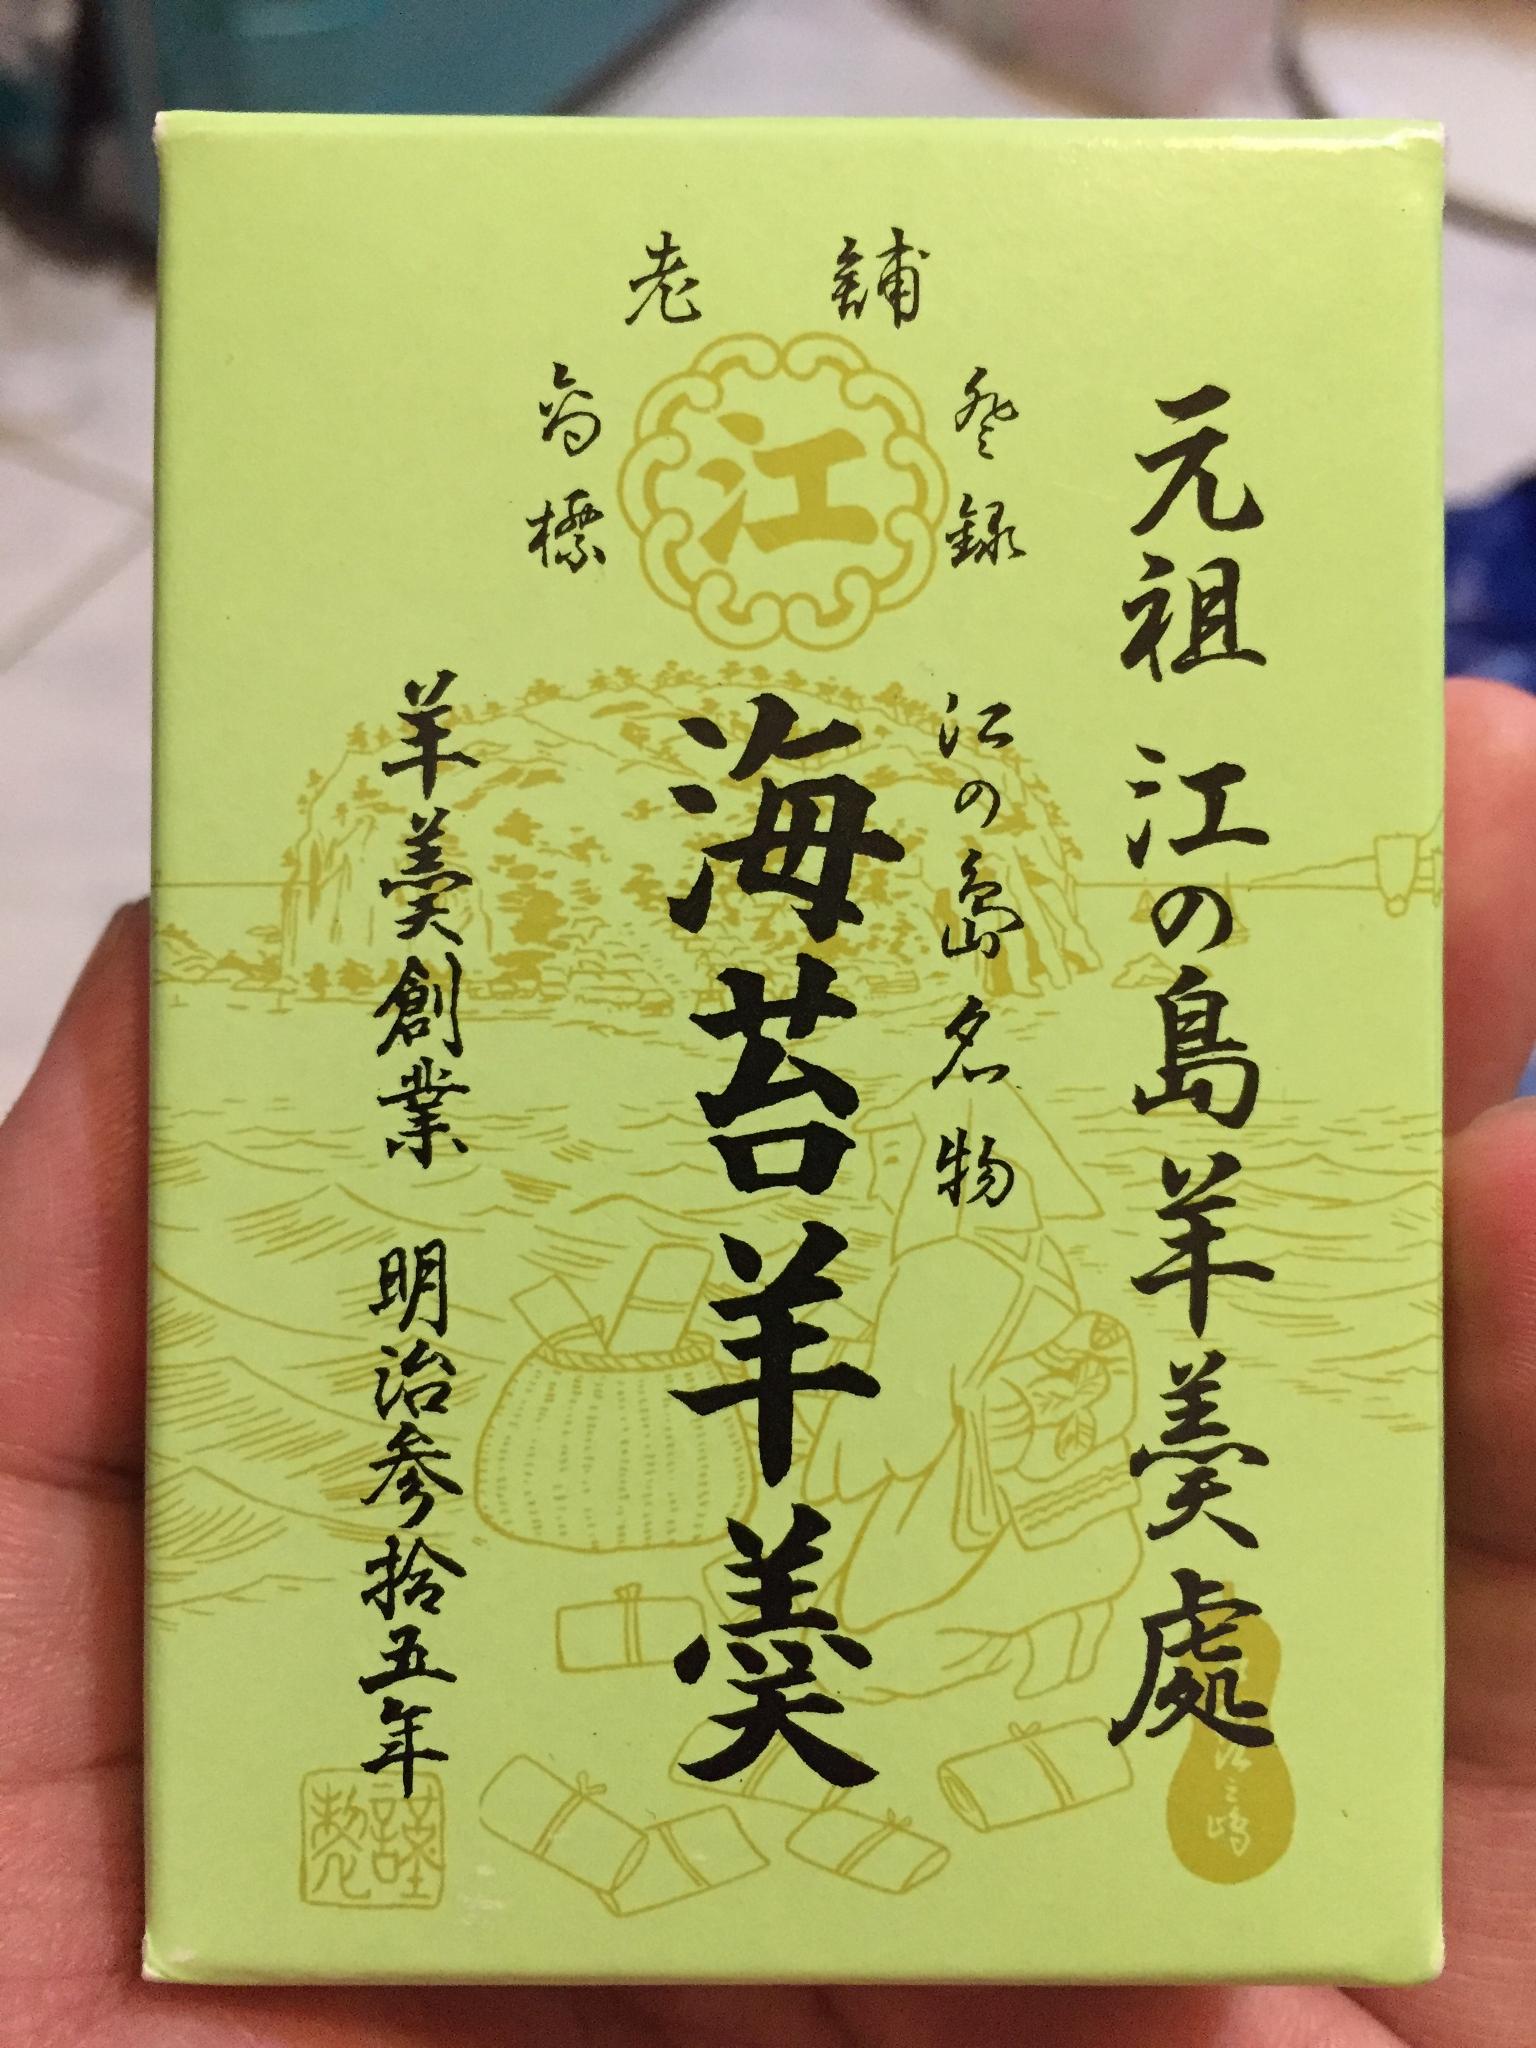 老舗
登録
商標
江
元祖 江の島羊羹處
江の島名物
海苔羊羹
羊羹創業 明治参拾五年
謹製
江之嶋